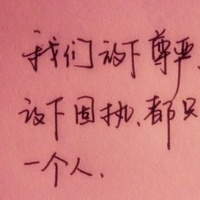 我们放下尊严、
放下固执、都只
一个人.